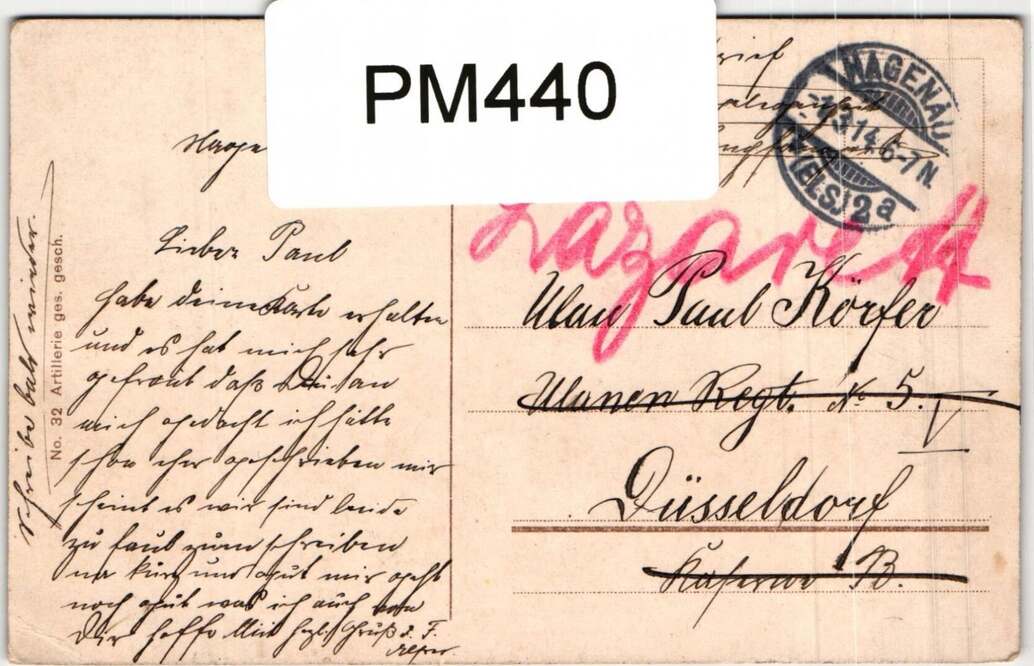 PM440
HAGENAU
3.14.6-7N.
(ELS.) 2a
Lazarett
Lieber Paul
habe deine Karte erhalten
und es hat mich sehr
gefreut daß Du an
mich gedacht ich hätte
schon eher geschrieben mir
scheint es wir sind beide
zu faul zum schreiben
na kurz und gut mir geht
noch gut was ich auch von
Dir hoffe Mit herzl. Gruß d. F.
schreibe bald wieder.
No. 32 Artillerie ges. gesch.
Ulan Paul Körfer
Ulanen Regt. No 5.
Düsseldorf
Kaserne B.